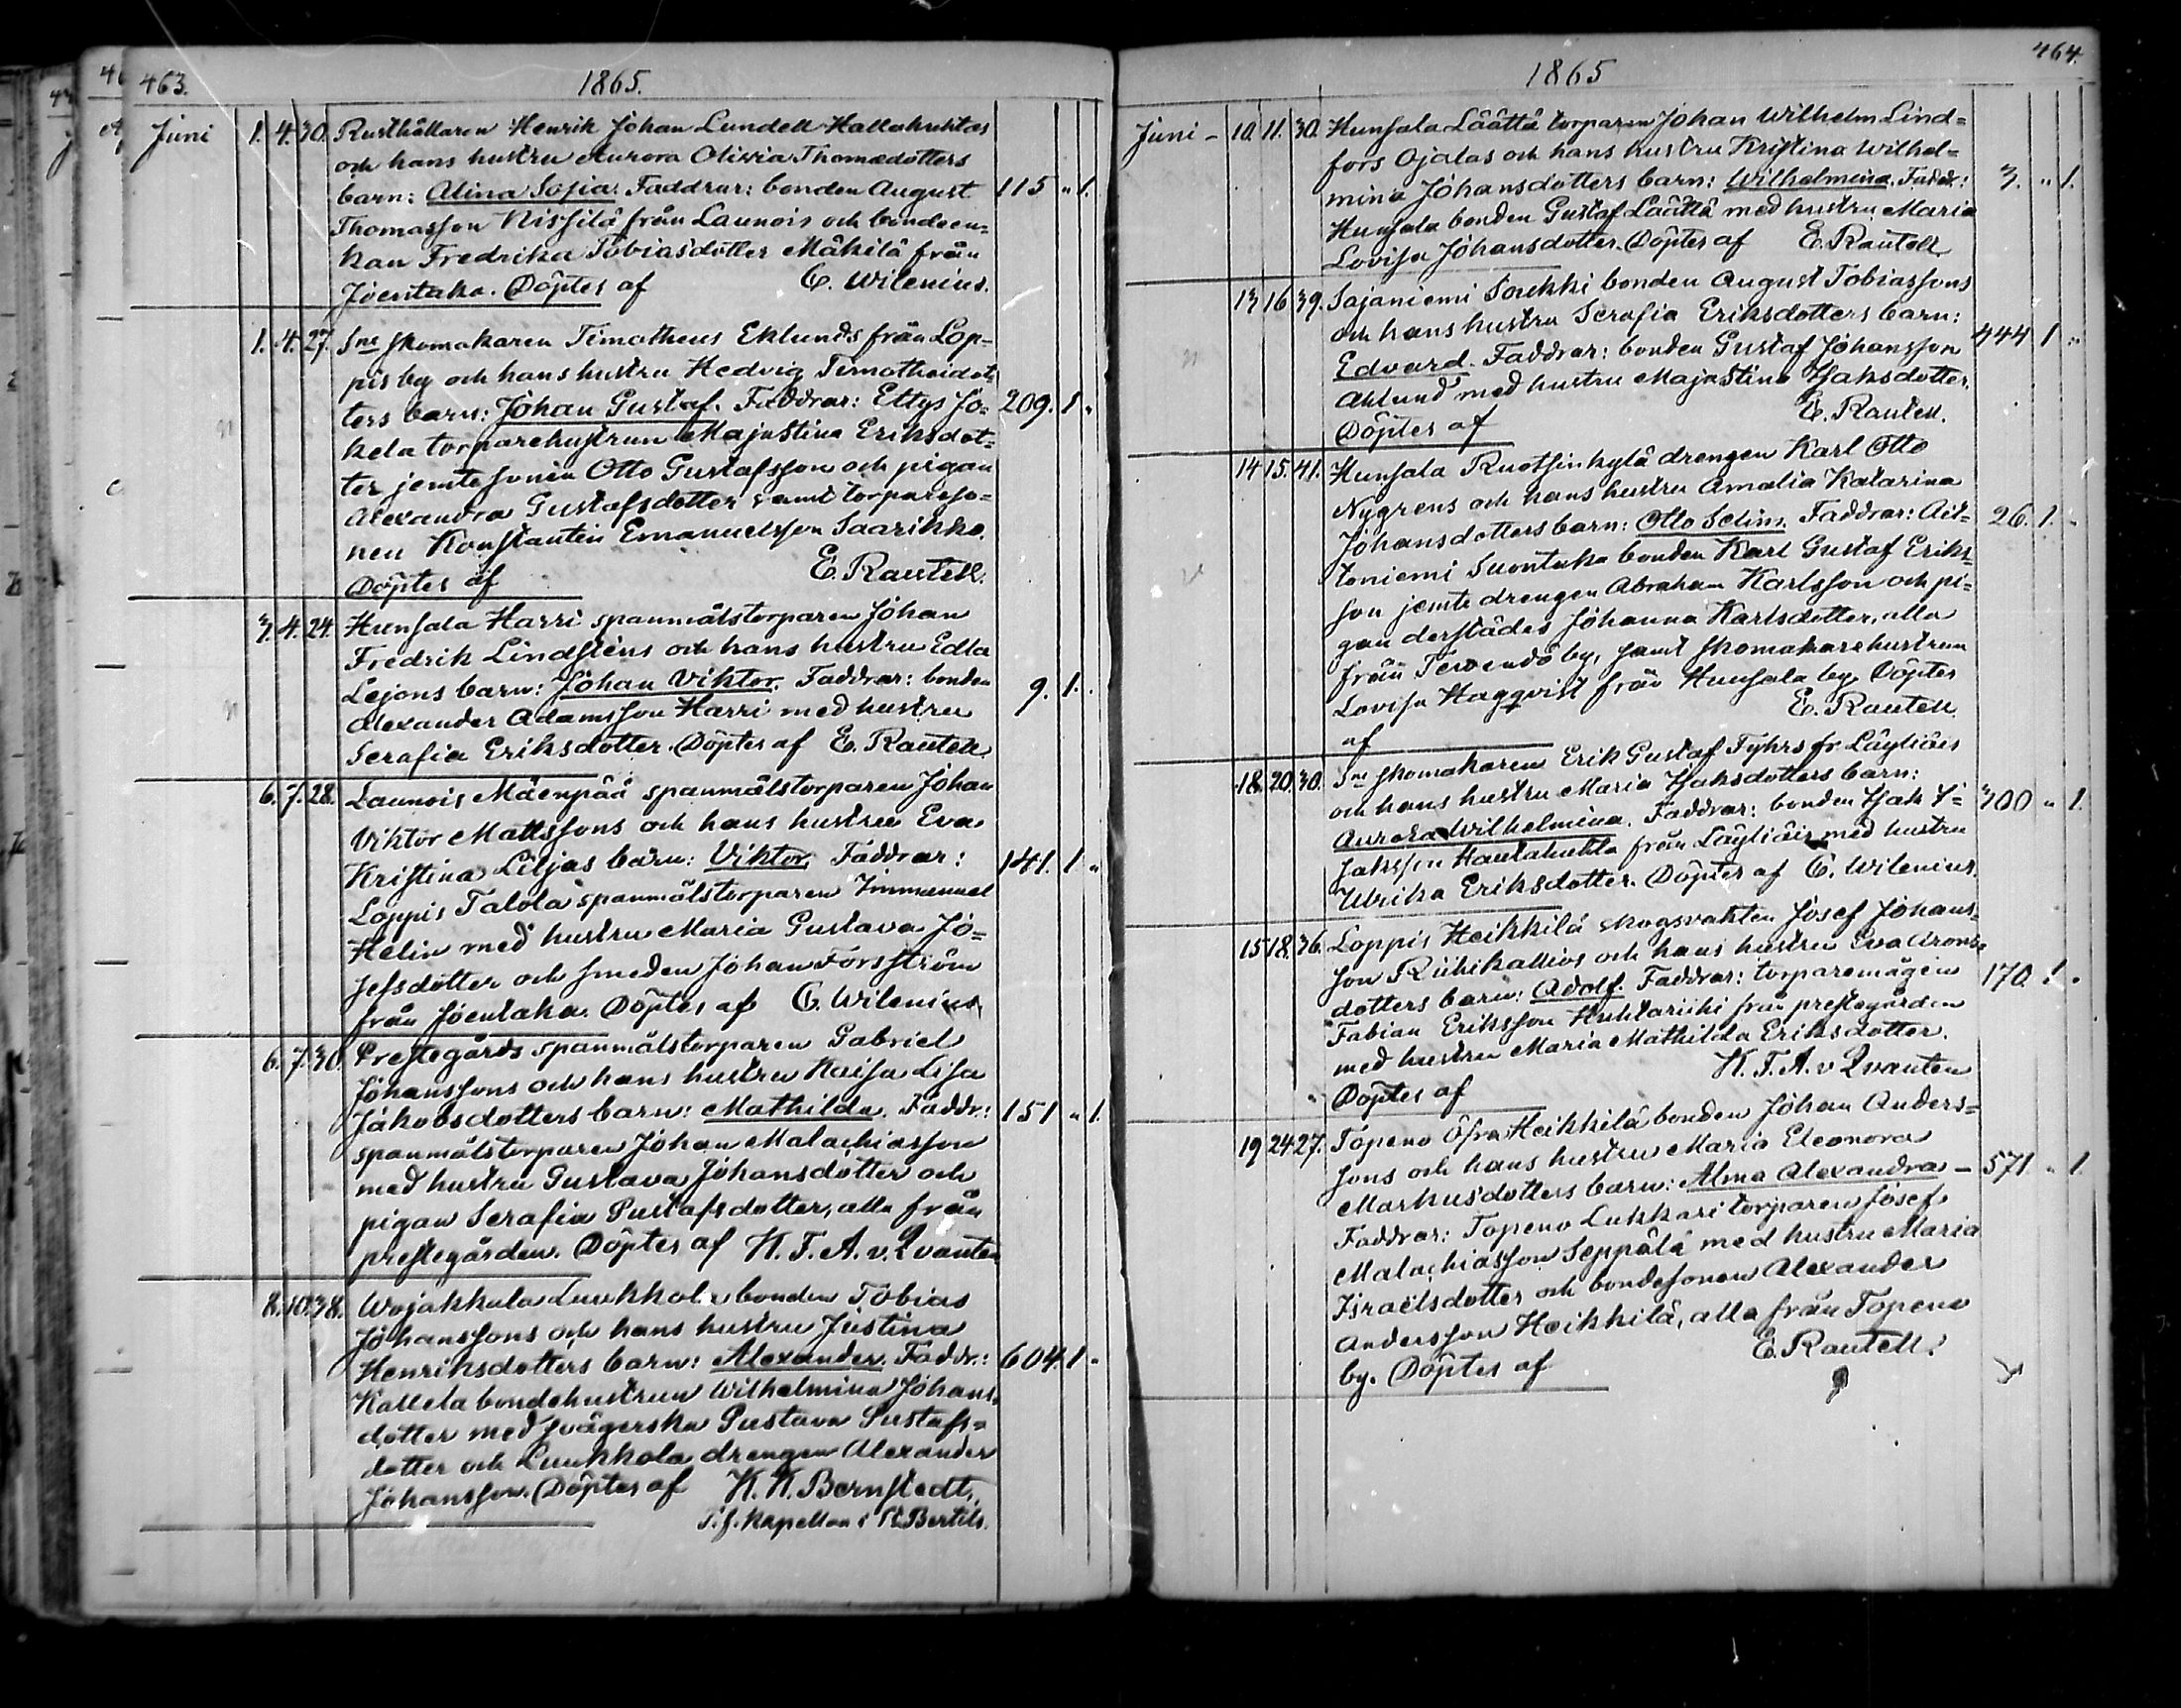 463.
1865.
Juni 1. 4. 30. Rusthållaren Henrik Johan Lundell Hallahuhtas
och hans hustru Aurora Olivia Thomædotters
barn: Alina Sofia. Faddrar: bonden August 115 " 1.
Thomasson Nissilä från Launois och bondeen-
kan Fredrika Tobiasdotter Mäkilä från
Joentaka. Döptes af C. Wilenius.
1. 4. 27. Sne skomakaren Timotheus Eklunds från Lop-
pis by och hans hustru Hedvig Timotheidot-
ters barn: Johan Gustaf. Faddrar: Ettys Jo- 209. 1 "
kela torparehustrun Majastina Eriksdot-
ter jemte sonen Otto Gustafsson och pigan
Alexandra Gustafsdotter samt torpareso-
nen Konstantin Emanuelsson Saarikko.
Döptes af E. Rautell.
3. 4. 24. Hunsala Harri spanmålstorparen Johan
Fredrik Lindsténs och hans hustru Edla
Lejons barn: Johan Viktor. Faddrar: bonden 9. 1. "
Alexander Adamsson Harri med hustru
Serafia Eriksdotter. Döptes af E. Rautell
6. 7. 28. Launois Mäenpää spanmålstorparen Johan
Viktor Mattssons och hans hustru Eva
Kristina Liljas barn: Viktor. Faddrar: 141. 1 "
Loppis Talola spanmålstorparen Immanuel
Helin med hustru Maria Gustava Jo-
sefsdotter och smeden Johan Forsström
från Joentaka. Döptes af C. Wilenius
6. 7. 30. Prestegårds spanmålstorparen Gabriel
Johanssons och hans hustru Kaisa Lisa
Jakobsdotters barn: Mathilda. Faddr.: 151 " 1.
spanmålstorparen Johan Malachiasson
med hustru Gustava Johansdotter och
pigan Serafia Gustafsdotter, alla från
prestegården. Döptes af K. F. A. v. Qvanten
8. 10. 38. Wojakkala Luukkola bonden Tobias
Johanssons och hans hustru Justina
Henriksdotters barn: Alexander. Faddr.: 604. 1 "
Kallela bondehustrun Wilhelmina Johans-
dotter med svägerska Gustava Gustafs-
dotter och Luukkola drengen Alexander
Johansson. Döptes af K. K. Bernstedt.
T. f. kapellan i St Bertils.
464.
1865
Juni - 10. 11. 30. Hunsala Läättä torparen Johan Wilhelm Lind-
fors Ojalas och hans hustru Kristina Wilhel-
mina Johansdotters barn: Wilhelmina. Faddr.: 3. " 1.
Hunsala bonden Gustaf Läättä med hustru Maria
Lovisa Johansdotter. Döptes af E. Rautell
13 16 39. Sajaniemi Soukki bonden August Tobiassons
och hans hustru Serafia Eriksdotters barn:
Edvard. Faddrar: bonden Gustaf Johansson 444 1 "
Ahlund med hustru Majastina Isaksdotter.
Döptes af E. Rautell.
14 15. 41. Hunsala Ruotsinkylä drengen Karl Otto
Nygrens och hans hustru Amalia Katarina
Johansdotters barn: Otto Selim. Faddrar: Ait- 26. 1. "
toniemi Suontaka bonden Karl Gustaf Eriks-
son jemte drengen Abraham Karlsson och pi-
gan derstädes Johanna Karlsdotter, alla
från Tervendö by, samt skomakarehustrun
Lovisa Hagqvist från Hunsala by. Döptes
af E. Rautell
18. 20. 30. Sne skomakaren Erik Gustaf Fyhrs fr. Läyliäis
och hans hustru Maria Isaksdotters barn:
Aurora Wilhelmina. Faddrar: bonden Isak I- 300 " 1.
saksson Hautahuhta från Läyliäis med hustru
Ulrika Eriksdotter. Döptes af C. Wilenius.
15 18. 36. Loppis Heikkilä skogsvakten Josef Johans-
son Riihikallios och hans hustru Eva Arons-
dotters barn: Adolf. Faddrar: torparemågen 170. 1. "
Fabian Eriksson Huhtariihi från prestegården
med hustru Maria Mathilda Eriksdotter.
Döptes af K. F. A. v Qvanten
19 24. 27. Topeno Öfra Heikkilä bonden Johan Anders-
sons och hans hustru Maria Eleonora
Markusdotters barn: Alma Alexandra - 571. " 1.
Faddrar: Topeno Lukkari torparen Josef
Malachiasson Seppälä med hustru Maria
Israëlsdotter och bondesonen Alexander
Andersson Heikkilä, alla från Topeno
by. Döptes af E. Rautell.